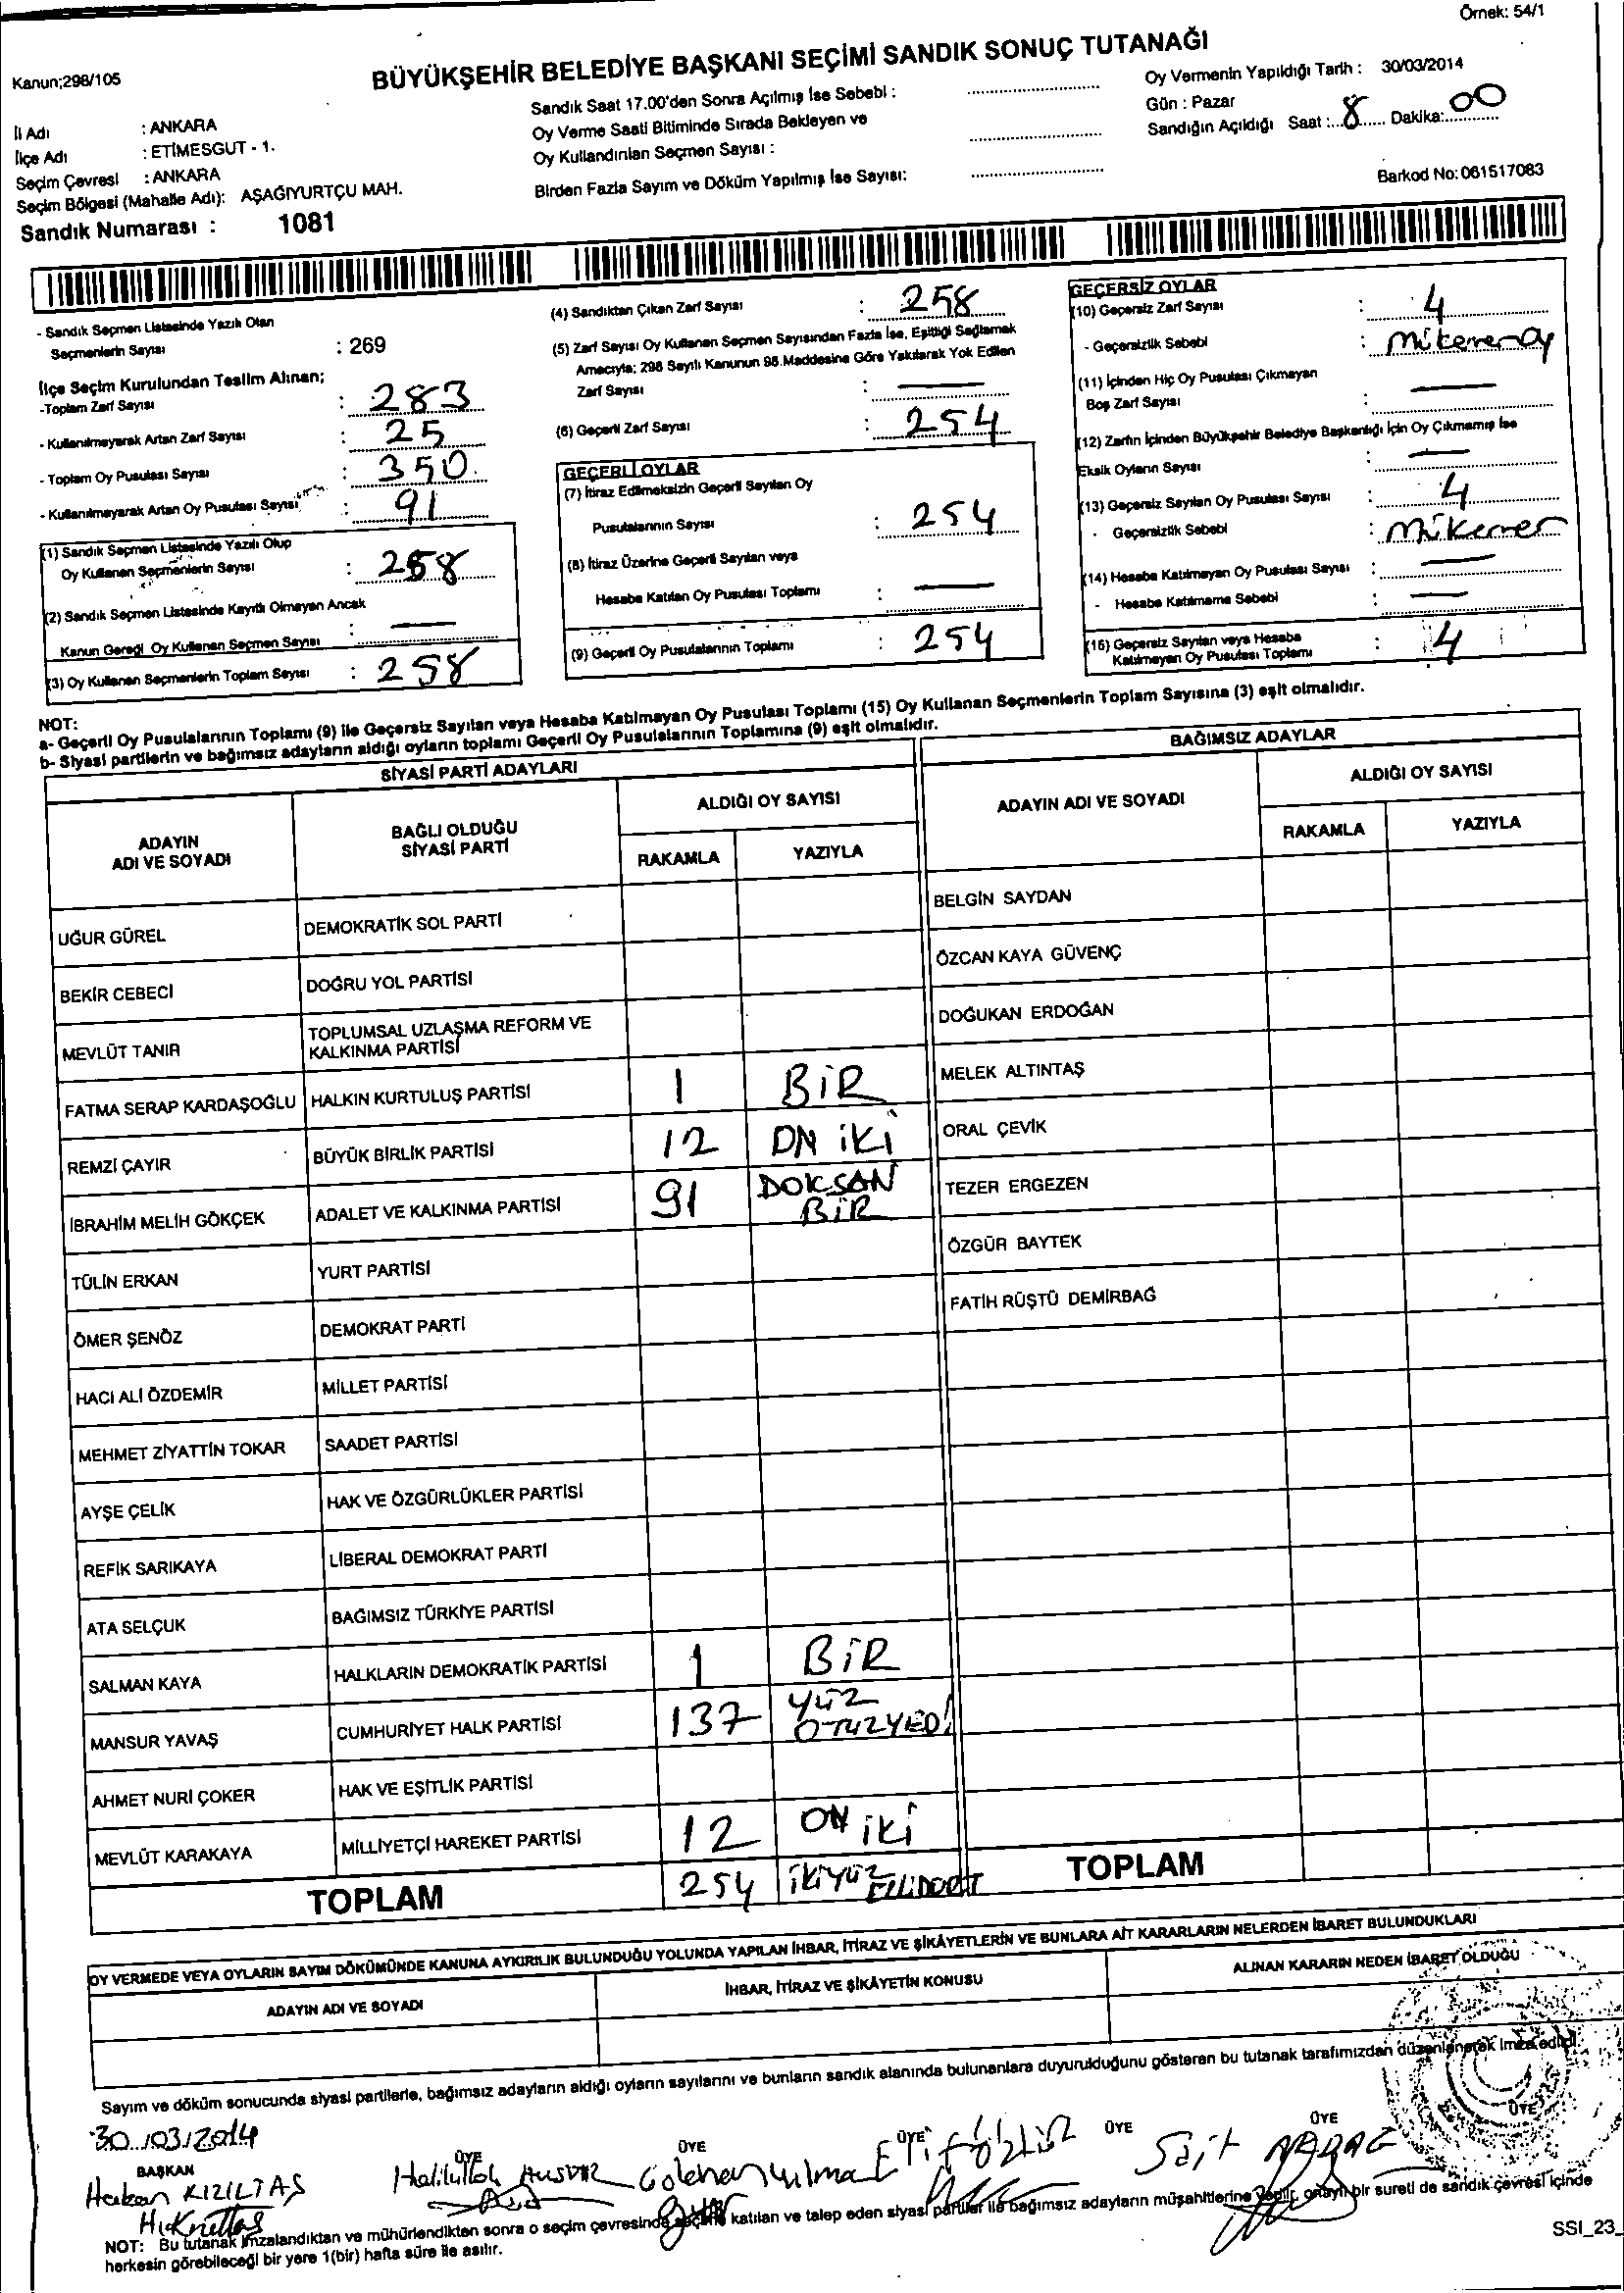 Örnek: 54/1
Kanun;298/105
BÜYÜKŞEHİR BELEDİYE BAŞKANI SEÇİMİ SANDIK SONUÇ TUTANAĞI
İl Adı : ANKARA
İlçe Adı : ETİMESGUT - 1.
Seçim Çevresi : ANKARA
Seçim Bölgesi (Mahalle Adı): AŞAĞIYURTÇU MAH.
Sandık Numarası : 1081
Sandık Saat 17.00'den Sonra Açılmış İse Sebebi :
Oy Verme Saati Bitiminde Sırada Bekleyen ve
Oy Kullandırılan Seçmen Sayısı :
Birden Fazla Sayım ve Döküm Yapılmış İse Sayısı:
Oy Vermenin Yapıldığı Tarih : 30/03/2014
Gün : Pazar
Sandığın Açıldığı Saat : 8 Dakika: 00
Barkod No: 061517083
- Sandık Seçmen Listesinde Yazılı Olan
Seçmenlerin Sayısı : 269
İlçe Seçim Kurulundan Teslim Alınan;
-Toplam Zarf Sayısı : 283
- Kullanılmayarak Artan Zarf Sayısı : 25
- Toplam Oy Pusulası Sayısı : 350
- Kullanılmayarak Artan Oy Pusulası Sayısı : 91
(1) Sandık Seçmen Listesinde Yazılı Olup
Oy Kullanan Seçmenlerin Sayısı : 258
(2) Sandık Seçmen Listesinde Kayıtlı Olmayan Ancak
Kanun Gereği Oy Kullanan Seçmen Sayısı : —
(3) Oy Kullanan Seçmenlerin Toplam Sayısı : 258
(4) Sandıktan Çıkan Zarf Sayısı : 258
(5) Zarf Sayısı Oy Kullanan Seçmen Sayısından Fazla İse, Eşitliği Sağlamak
Amacıyla; 298 Sayılı Kanunun 98.Maddesine Göre Yakılarak Yok Edilen
Zarf Sayısı : —
(6) Geçerli Zarf Sayısı : 254
GEÇERLİ OYLAR
(7) İtiraz Edilmeksizin Geçerli Sayılan Oy
Pusulalarının Sayısı : 254
(8) İtiraz Üzerine Geçerli Sayılan veya
Hesaba Katılan Oy Pusulası Toplamı : —
(9) Geçerli Oy Pusulalarının Toplamı : 254
GEÇERSİZ OYLAR
(10) Geçersiz Zarf Sayısı : 4
- Geçersizlik Sebebi : Mükerrer Oy
(11) İçinden Hiç Oy Pusulası Çıkmayan
Boş Zarf Sayısı : —
(12) Zarfın İçinden Büyükşehir Belediye Başkanlığı İçin Oy Çıkmamış İse
Eksik Oyların Sayısı : —
(13) Geçersiz Sayılan Oy Pusulası Sayısı : 4
- Geçersizlik Sebebi : Mükerrer
(14) Hesaba Katılmayan Oy Pusulası Sayısı : —
- Hesaba Katılmama Sebebi : —
(15) Geçersiz Sayılan veya Hesaba
Katılmayan Oy Pusulası Toplamı : 4
NOT:
a- Geçerli Oy Pusulalarının Toplamı (9) ile Geçersiz Sayılan veya Hesaba Katılmayan Oy Pusulası Toplamı (15) Oy Kullanan Seçmenlerin Toplam Sayısına (3) eşit olmalıdır.
b- Siyasi partilerin ve bağımsız adayların aldığı oyların toplamı Geçerli Oy Pusulalarının Toplamına (9) eşit olmalıdır.
SİYASİ PARTİ ADAYLARI
ADAYIN ADI VE SOYADI
BAĞLI OLDUĞU SİYASİ PARTİ
ALDIĞI OY SAYISI
RAKAMLA YAZIYLA
UĞUR GÜREL DEMOKRATİK SOL PARTİ
BEKİR CEBECİ DOĞRU YOL PARTİSİ
MEVLÜT TANIR TOPLUMSAL UZLAŞMA REFORM VE KALKINMA PARTİSİ
FATMA SERAP KARDAŞOĞLU HALKIN KURTULUŞ PARTİSİ 1 BİR
REMZİ ÇAYIR BÜYÜK BİRLİK PARTİSİ 12 ON İKİ
İBRAHİM MELİH GÖKÇEK ADALET VE KALKINMA PARTİSİ 91 DOKSAN BİR
TÜLİN ERKAN YURT PARTİSİ
ÖMER ŞENÖZ DEMOKRAT PARTİ
HACI ALİ ÖZDEMİR MİLLET PARTİSİ
MEHMET ZİYATTİN TOKAR SAADET PARTİSİ
AYŞE ÇELİK HAK VE ÖZGÜRLÜKLER PARTİSİ
REFİK SARIKAYA LİBERAL DEMOKRAT PARTİ
ATA SELÇUK BAĞIMSIZ TÜRKİYE PARTİSİ
SALMAN KAYA HALKLARIN DEMOKRATİK PARTİSİ 1 BİR
MANSUR YAVAŞ CUMHURİYET HALK PARTİSİ 137 YÜZ OTUZYEDİ
AHMET NURİ ÇOKER HAK VE EŞİTLİK PARTİSİ
MEVLÜT KARAKAYA MİLLİYETÇİ HAREKET PARTİSİ 12 ON İKİ
TOPLAM 254 İKİYÜZ ELLİDÖRT
BAĞIMSIZ ADAYLAR
ADAYIN ADI VE SOYADI
ALDIĞI OY SAYISI
RAKAMLA YAZIYLA
BELGİN SAYDAN
ÖZCAN KAYA GÜVENÇ
DOĞUKAN ERDOĞAN
MELEK ALTINTAŞ
ORAL ÇEVİK
TEZER ERGEZEN
ÖZGÜR BAYTEK
FATİH RÜŞTÜ DEMİRBAĞ
TOPLAM
OY VERMEDE VEYA OYLARIN SAYIM DÖKÜMÜNDE KANUNA AYKIRILIK BULUNDUĞU YOLUNDA YAPILAN İHBAR, İTİRAZ VE ŞİKÂYETLERİN VE BUNLARA AİT KARARLARIN NELERDEN İBARET BULUNDUKLARI
ADAYIN ADI VE SOYADI
İHBAR, İTİRAZ VE ŞİKÂYETİN KONUSU
ALINAN KARARIN NEDEN İBARET OLDUĞU
Sayım ve döküm sonucunda siyasi partilerle, bağımsız adayların aldığı oyların sayılarını ve bunların sandık alanında bulunanlara duyurulduğunu gösteren bu tutanak tarafımızdan düzenlenerek imza edildi.
30/03/2014
BAŞKAN ÜYE ÜYE ÜYE ÜYE ÜYE ÜYE
Hakan KIZILTAŞ
Elif Öztürk
Sait
NOT: Bu tutanak imzalandıktan ve mühürlendikten sonra o seçim çevresinde seçime katılan ve talep eden siyasi partiler ile bağımsız adayların müşahitlerine verilir, onaylı bir sureti de sandık çevresi içinde
herkesin görebileceği bir yere 1(bir) hafta süre ile asılır.
SSI_23_